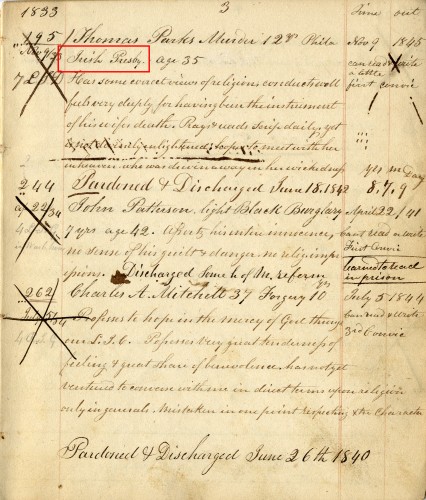 1833 3 Time out
195 Thomas Parks Murder 12 yrs Phila Nov 9 1845
Nov 9/33 Irish Presby. age 35 can read & write
a little
Has some correct views of religion, conducts well first convic
feels very deeply for having been the instrument
of his wifes death. Prays & reads Scrip daily, yet
is not savingly enlightened, hopes to meet with her
in heaven, who was driven away in her wickedness yrs m Day
244 Pardoned & Discharged June 18. 1842 8, 7, 9
Ap 22/34 John Patterson, light Black Burglary April 22/41
7 yrs age 42. Asserts his entire innocence, cant read or write
no sense of his guilt & danger no religious First Convic
Discharged Some h of his reform learned to read
in prison
262 Charles A. Mitchell 37 Forgery 10 yrs July 5 1844
Professes to hope in the mercy of God through can read & write
our L. J. C. Posesses very great tenderness of 3rd Convic
feeling & great share of benevolence has not yet
ventured to converse with me in direct terms upon religion
only in generals. Mistaken in one point respecting Character
Pardoned & Discharged June 26th 1840